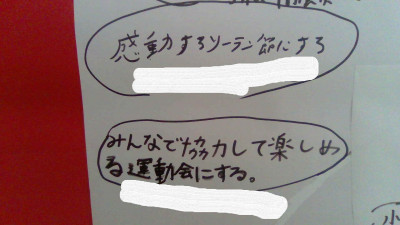 感動するソーラン節にする
みんなで協力して楽しめ
る運動会にする。